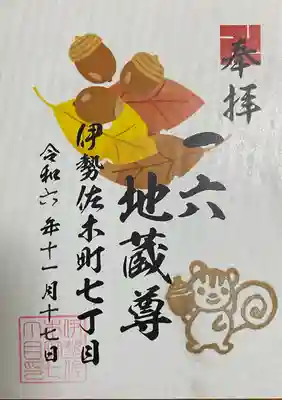 奉拝
一六
地蔵尊
伊勢佐木町七丁目
令和六年十一月十七日